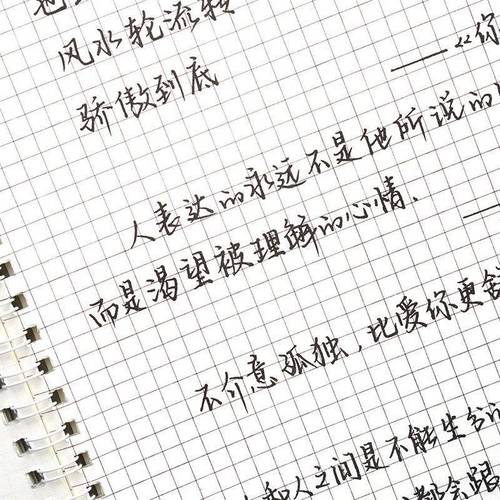 风水轮流转
骄傲到底
——“你
人表达的永远不是他所说的
而是渴望被理解的心情.
不介意孤独,比爱你更舍
和人之间是不能生分的
都会跟